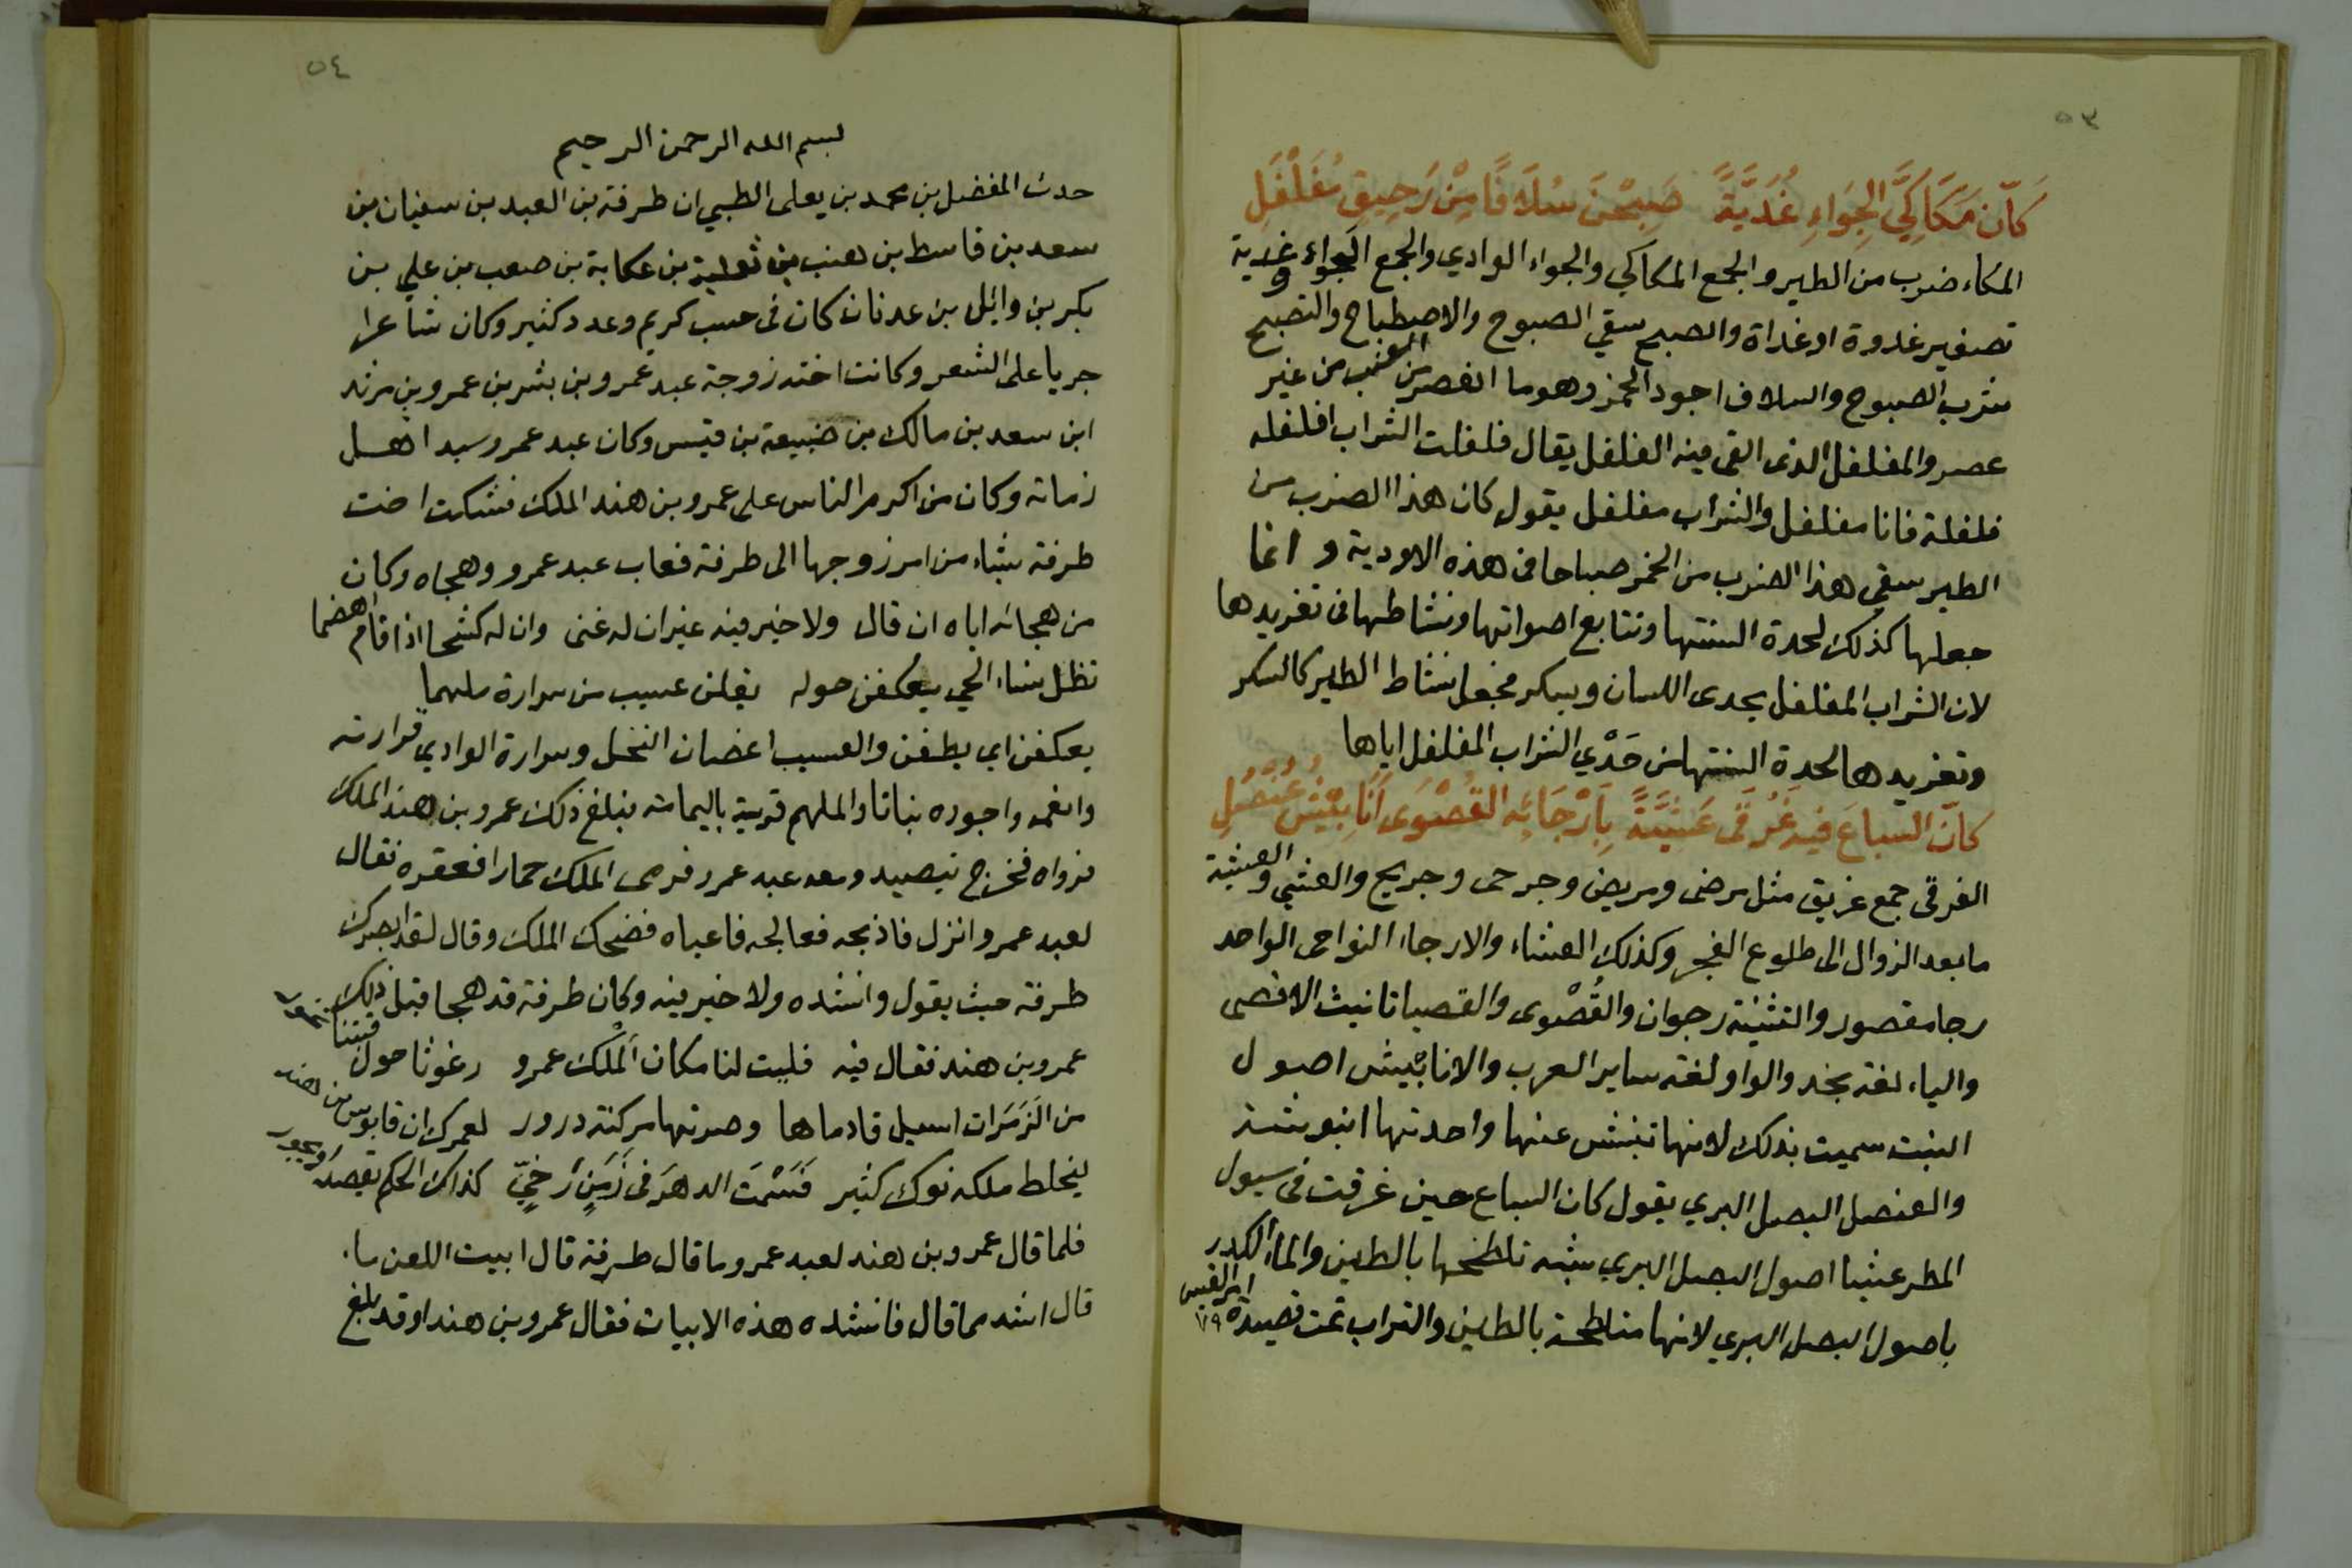 ٥٣
كَأَنّ مَكَاكِيَّ الجِوَاءِ غُدَيَّةً صَبِحْنَ سُلَافًا مِنْ رَحِيقٍ مُفَلْفَلِ
المكاء ضرب من الطير والجمع المكاكي والجواء الوادي والجمع الجواء وغدية
تصغير غدوة او غداة والصبح سقي الصبوح والاصطباح والتصبح
شرب الصبوح والسلاف اجود الخمر وهو ما انعصر من العنب من غير
عصر والمفلفل الذى القى فيه الفلفل يقال فلفلت الشراب افلفله
فلفلة فانا مفلفل والشراب مفلفل يقول كان هذا الضرب من
الطير سقى هذا الضرب من الخمر صباحا فى هذه الاودية و انما
جعلها كذلك لحدة السنتها وتتابع اصواتها ونشاطها فى تغريدها
لان الشراب المفلفل يحدى اللسان ويسكر فجعل نشاط الطير كالسكر
وتغريدها لحدة السنتها من حَدْيِ الشراب المفلفل اياها
كأنّ السباعَ فيه غَرْقَى عَشِيَّةً بِأَرْجَائِه القُصْوَى أَنَابِيْشُ عُنْصُلِ
الغرقى جمع غريق مثل مرضى ومريض وجرحى وجريح والعشي والعشية
ما بعد الزوال الى طلوع الفجر وكذلك العشاء والارجاء النواحى الواحد
رجا مقصور والتثنية رجوان والقُصْوى والقصيا تانيث الاقصى
والياء لغة نجد والواو لغة ساير العرب والانابيش اصول
النبت سميت بذلك لانها تنبش عنها واحدتها انبوشة
والعنصل البصل البري يقول كان السباع حين غرقت فى سيول
المطر عشيا اصول البصل البري شبه تلطخها بالطين والماء الكدر
باصول البصل البري لانها متلطخة بالطين والتراب تمت قصيدة امرالقيس
٧٩
٥٤
بسم الله الرحمن الرحيم
حدث المفضل بن محمد بن يعلى الطبي ان طرفة بن العبد بن سفيان بن
سعد بن قاسط بن هنب بن ثعلبة بن عكابة بن صعب بن علي بن
بكر بن وائل بن عدنان كان فى حسب كريم وعدد كثير وكان شاعرا
جريا على الشعر وكانت اخته زوجة عبد عمرو بن بشر بن عمرو بن مرثد
ابن سعد بن مالك بن ضبيعة بن قيس وكان عبد عمرو سيد اهل
زمانه وكان من اكرم الناس على عمرو بن هند الملك فشكت اخت
طرفة شياء من امر زوجها الى طرفة فعاب عبد عمرو وهجاه وكان
من هجائه اياه ان قال ولا خير فيه غير ان له غنى وان له كشحا اذا قام اهضما
تظل نساء الحي يعكفن حوله يقلن عسيب من سرارة ملهما
يعكفن اي يطفن والعسيب اغصان النخل وسرارة الوادي قرارته
وانعمه واجوده نباتا والملهم قرية باليمامة فبلغ ذلك عمرو بن هند الملك
فرواه فخرج يتصيد ومعه عبد عمرو فرمى الملك حمارا فعقره فقال
لعبد عمرو انزل فاذبحه فعالجه فاعياه فضحك الملك وقال لقد ابصرك
طرفة حيث يقول وانشده ولا خير فيه وكان طرفة قد هجا قبل ذلك
عمرو بن هند فقال فيه فليت لنا مكان الملك عمرو رغوثا حول قبتنا تخور
من الزَمَرات اسبل قادماها وضرتها مركنة درور لعمرك ان قابوس بن هند
ليخلط ملكه نوك كثير قَسَمْتَ الدهرَ فى زَمَنٍ رَخِيّ كذاك الحكم يقصد او يجور
فلما قال عمرو بن هند لعبد عمرو ما قال طرفة قال ابيت اللعن ما
قال اشد مما قال فانشده هذه الابيات فقال عمرو بن هند او قد بلغ